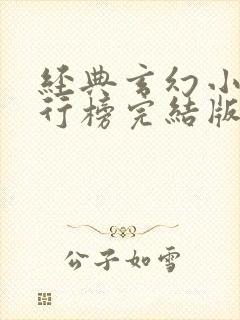 經典玄幻小
行榜完結版
公子如雪